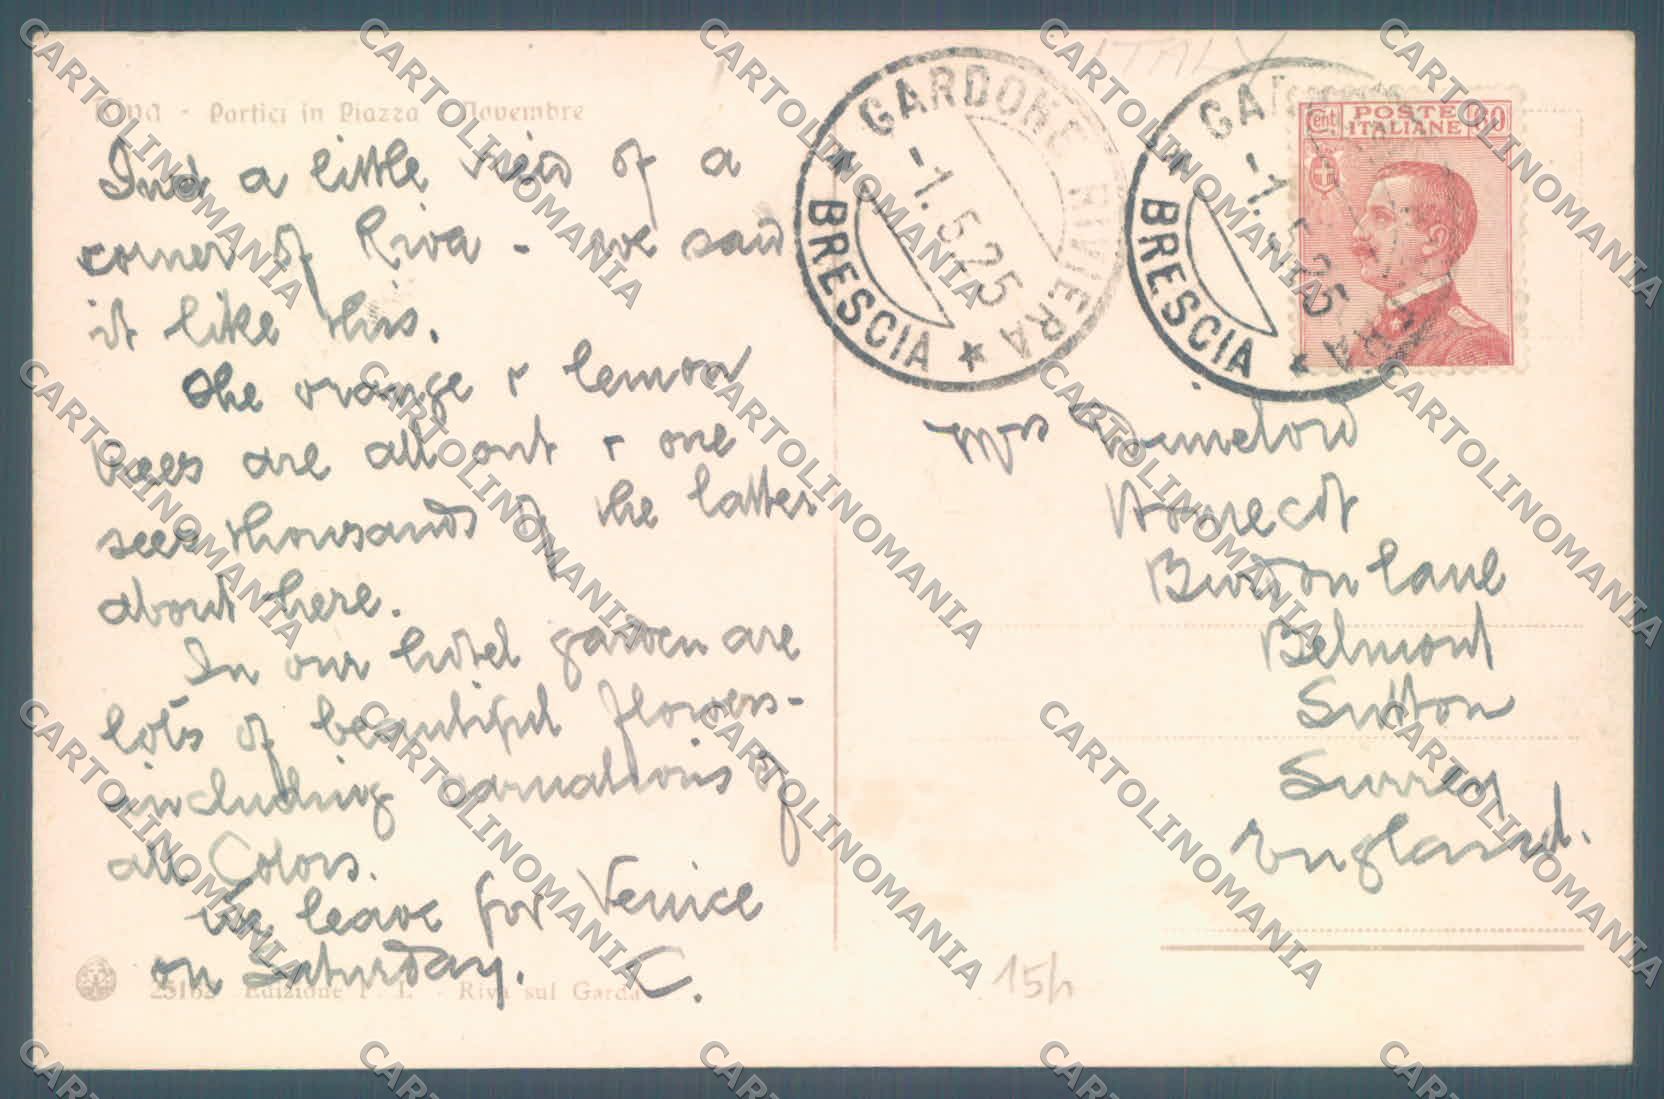 Riva - Portici in Piazza Novembre
Just a little view of a
corner of Riva - we said
it like this.
The orange & lemon
trees are all out & one
sees thousands of the latter
about here.
In our hotel garden are
lots of beautiful flowers -
including carnations of
all Colors.
We leave for Venice
on Saturday. C.
25162 Edizione P. I. - Riva sul Garda
ITALY
GARDONE RIVIERA
-1.5.25
★ BRESCIA ★
GARDONE RIVIERA
-1.5.25
★ BRESCIA ★
Cent POSTE ITALIANE 60
Mrs
Homecot
Burdon Lane
Belmont
Sutton
Surrey
England.
15/
CARTOLINOMANIA